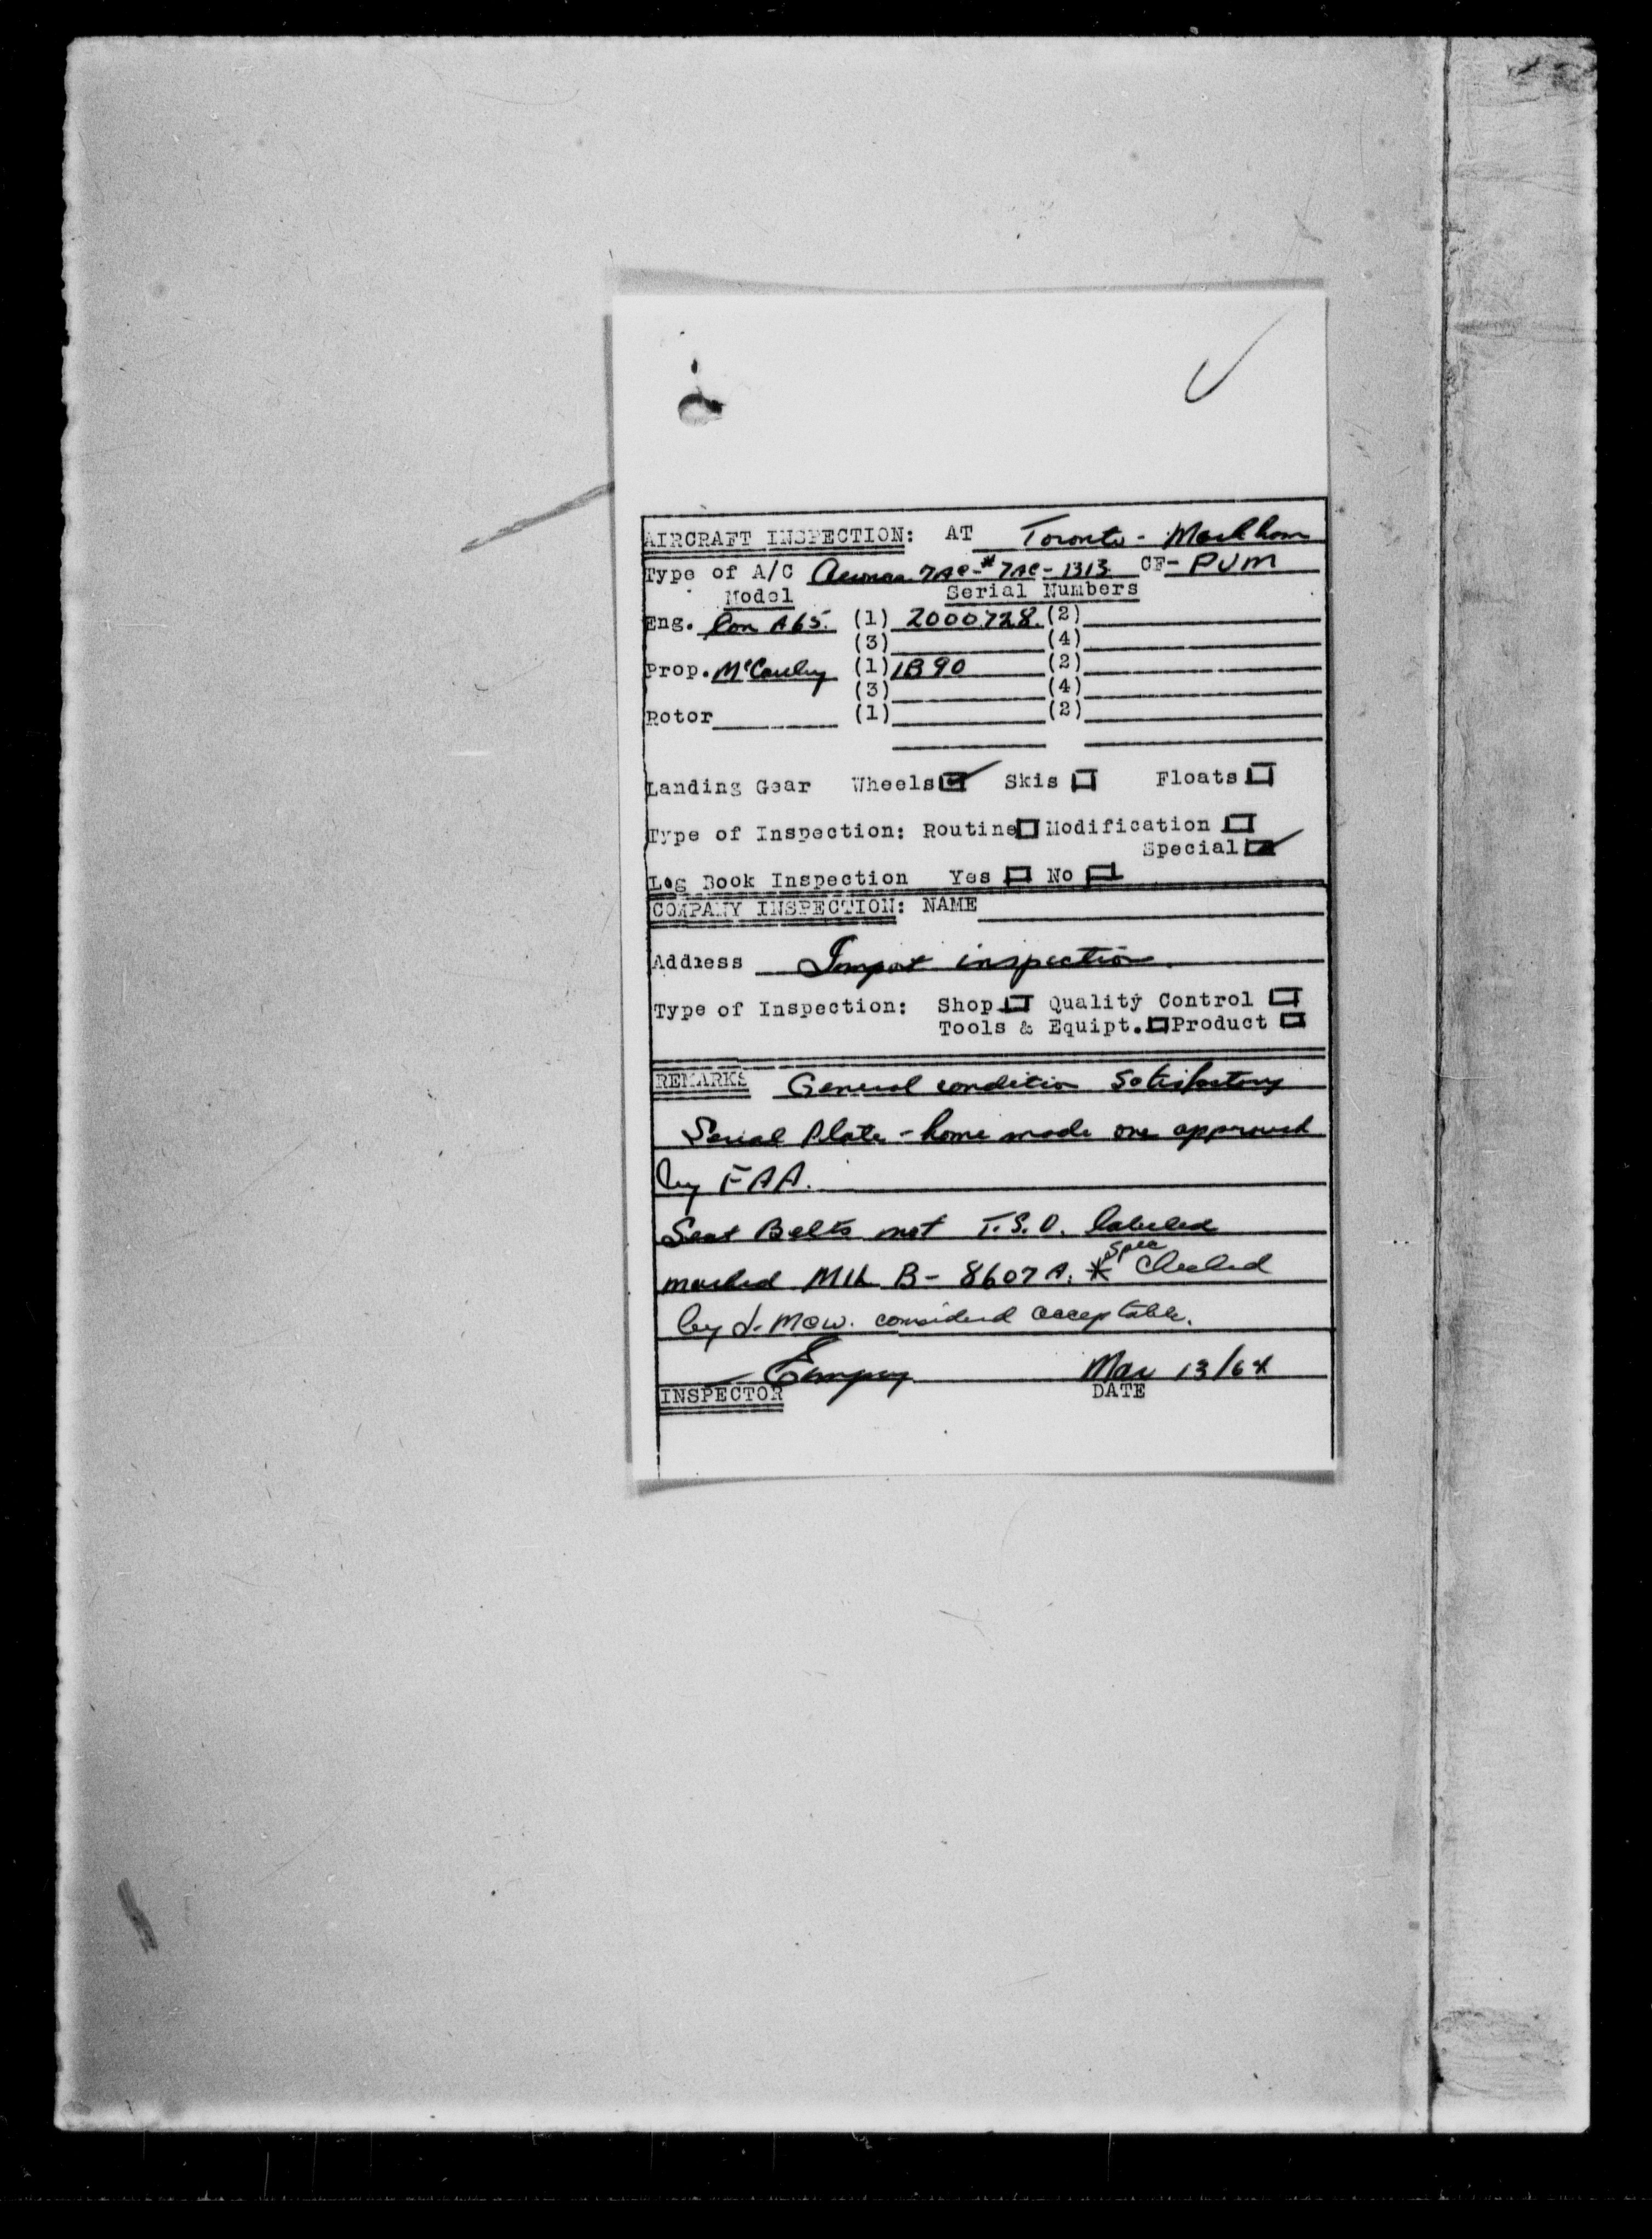 AIRCRAFT INSPECTION: AT Toronto - Markham
Type of A/C Aeronca 7AC - # 7AC - 1313 CF- PUM
Model Serial Numbers
Eng. Con A65. (1) 2000728 (2)
(3) (4)
Prop. McCauley (1) 1B90 (2)
(3) (4)
Rotor (1) (2)
Landing Gear Wheels Skis Floats
Type of Inspection: Routine Modification
Special
Log Book Inspection Yes No
COMPANY INSPECTION: NAME
Address Import inspection.
Type of Inspection: Shop Quality Control
Tools & Equipt. Product
REMARKS General condition Satisfactory
Serial Plate - home made one approved
by FAA.
Seat Belts not T.S.O. labeled
Spec
marked Mil B- 8607A. * Checked
by considered acceptable.
Mar 13/64
INSPECTOR DATE